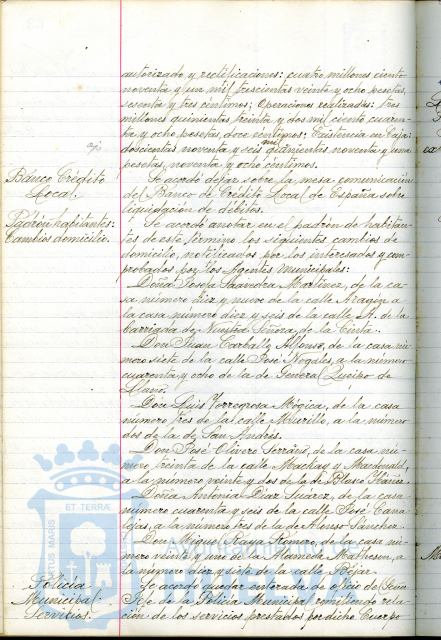 autorizado y rectificaciones: cuatro millones ciento
noventa y un mil trescientas veinte y ocho pesetas,
sesenta y tres céntimos; Operaciones realizadas: tres
millones quinientas treinta y dos mil ciento cuaren-
ta y ocho pesetas, doce céntimos; Existencia en Caja
doscientos noventa y seis mil quinientas noventa y una
pesetas, noventa y ocho céntimos.
Banco Crédito
Local.
Se acordó dejar sobre la mesa comunicación
del Banco de Crédito Local de España sobre
liquidación de débitos.
Padrón habitantes:
Cambios domicilio.
Se acordó anotar en el padrón de habitan-
tes de este término los siguientes cambios de
domicilio, notificados por los interesados y com-
probados por los Agentes municipales:
Doña Josefa Saavedra Martínez, de la ca-
sa número diez y nueve de la calle Aragón a
la casa número diez y seis de la calle A. de la
barriada de Nuestra Señora de la Cinta.
Don Juan Carballo Alfonso, de la casa nú-
mero siete de la calle José Nogales, a la número
cuarenta y ocho de la de General Queipo de
Llano.
Don Luis Torregrosa Mógica, de la casa
número tres de la calle Murillo, a la número
dos de la de San Andrés.
Don José Clavero Serrano, de la casa nú-
mero treinta de la calle Mackay y Macdonald,
a la número veinte y dos de la de Blasco Ibáñez.
Doña Antonia Díaz Suárez, de la casa
número cuarenta y seis de la calle José Cana-
lejas, a la número tres de la de Alonso Sánchez.
Don Miguel Raya Romero, de la casa nú-
mero veinte y uno de la Alameda Matheson, a
la número diez y siete de la calle Béjar.
Policía
Municipal
Servicios.
Se acordó quedar enterada de oficio del Señor
Jefe de la Policía Municipal remitiendo rela-
ción de los servicios prestados por dicho Cuerpo